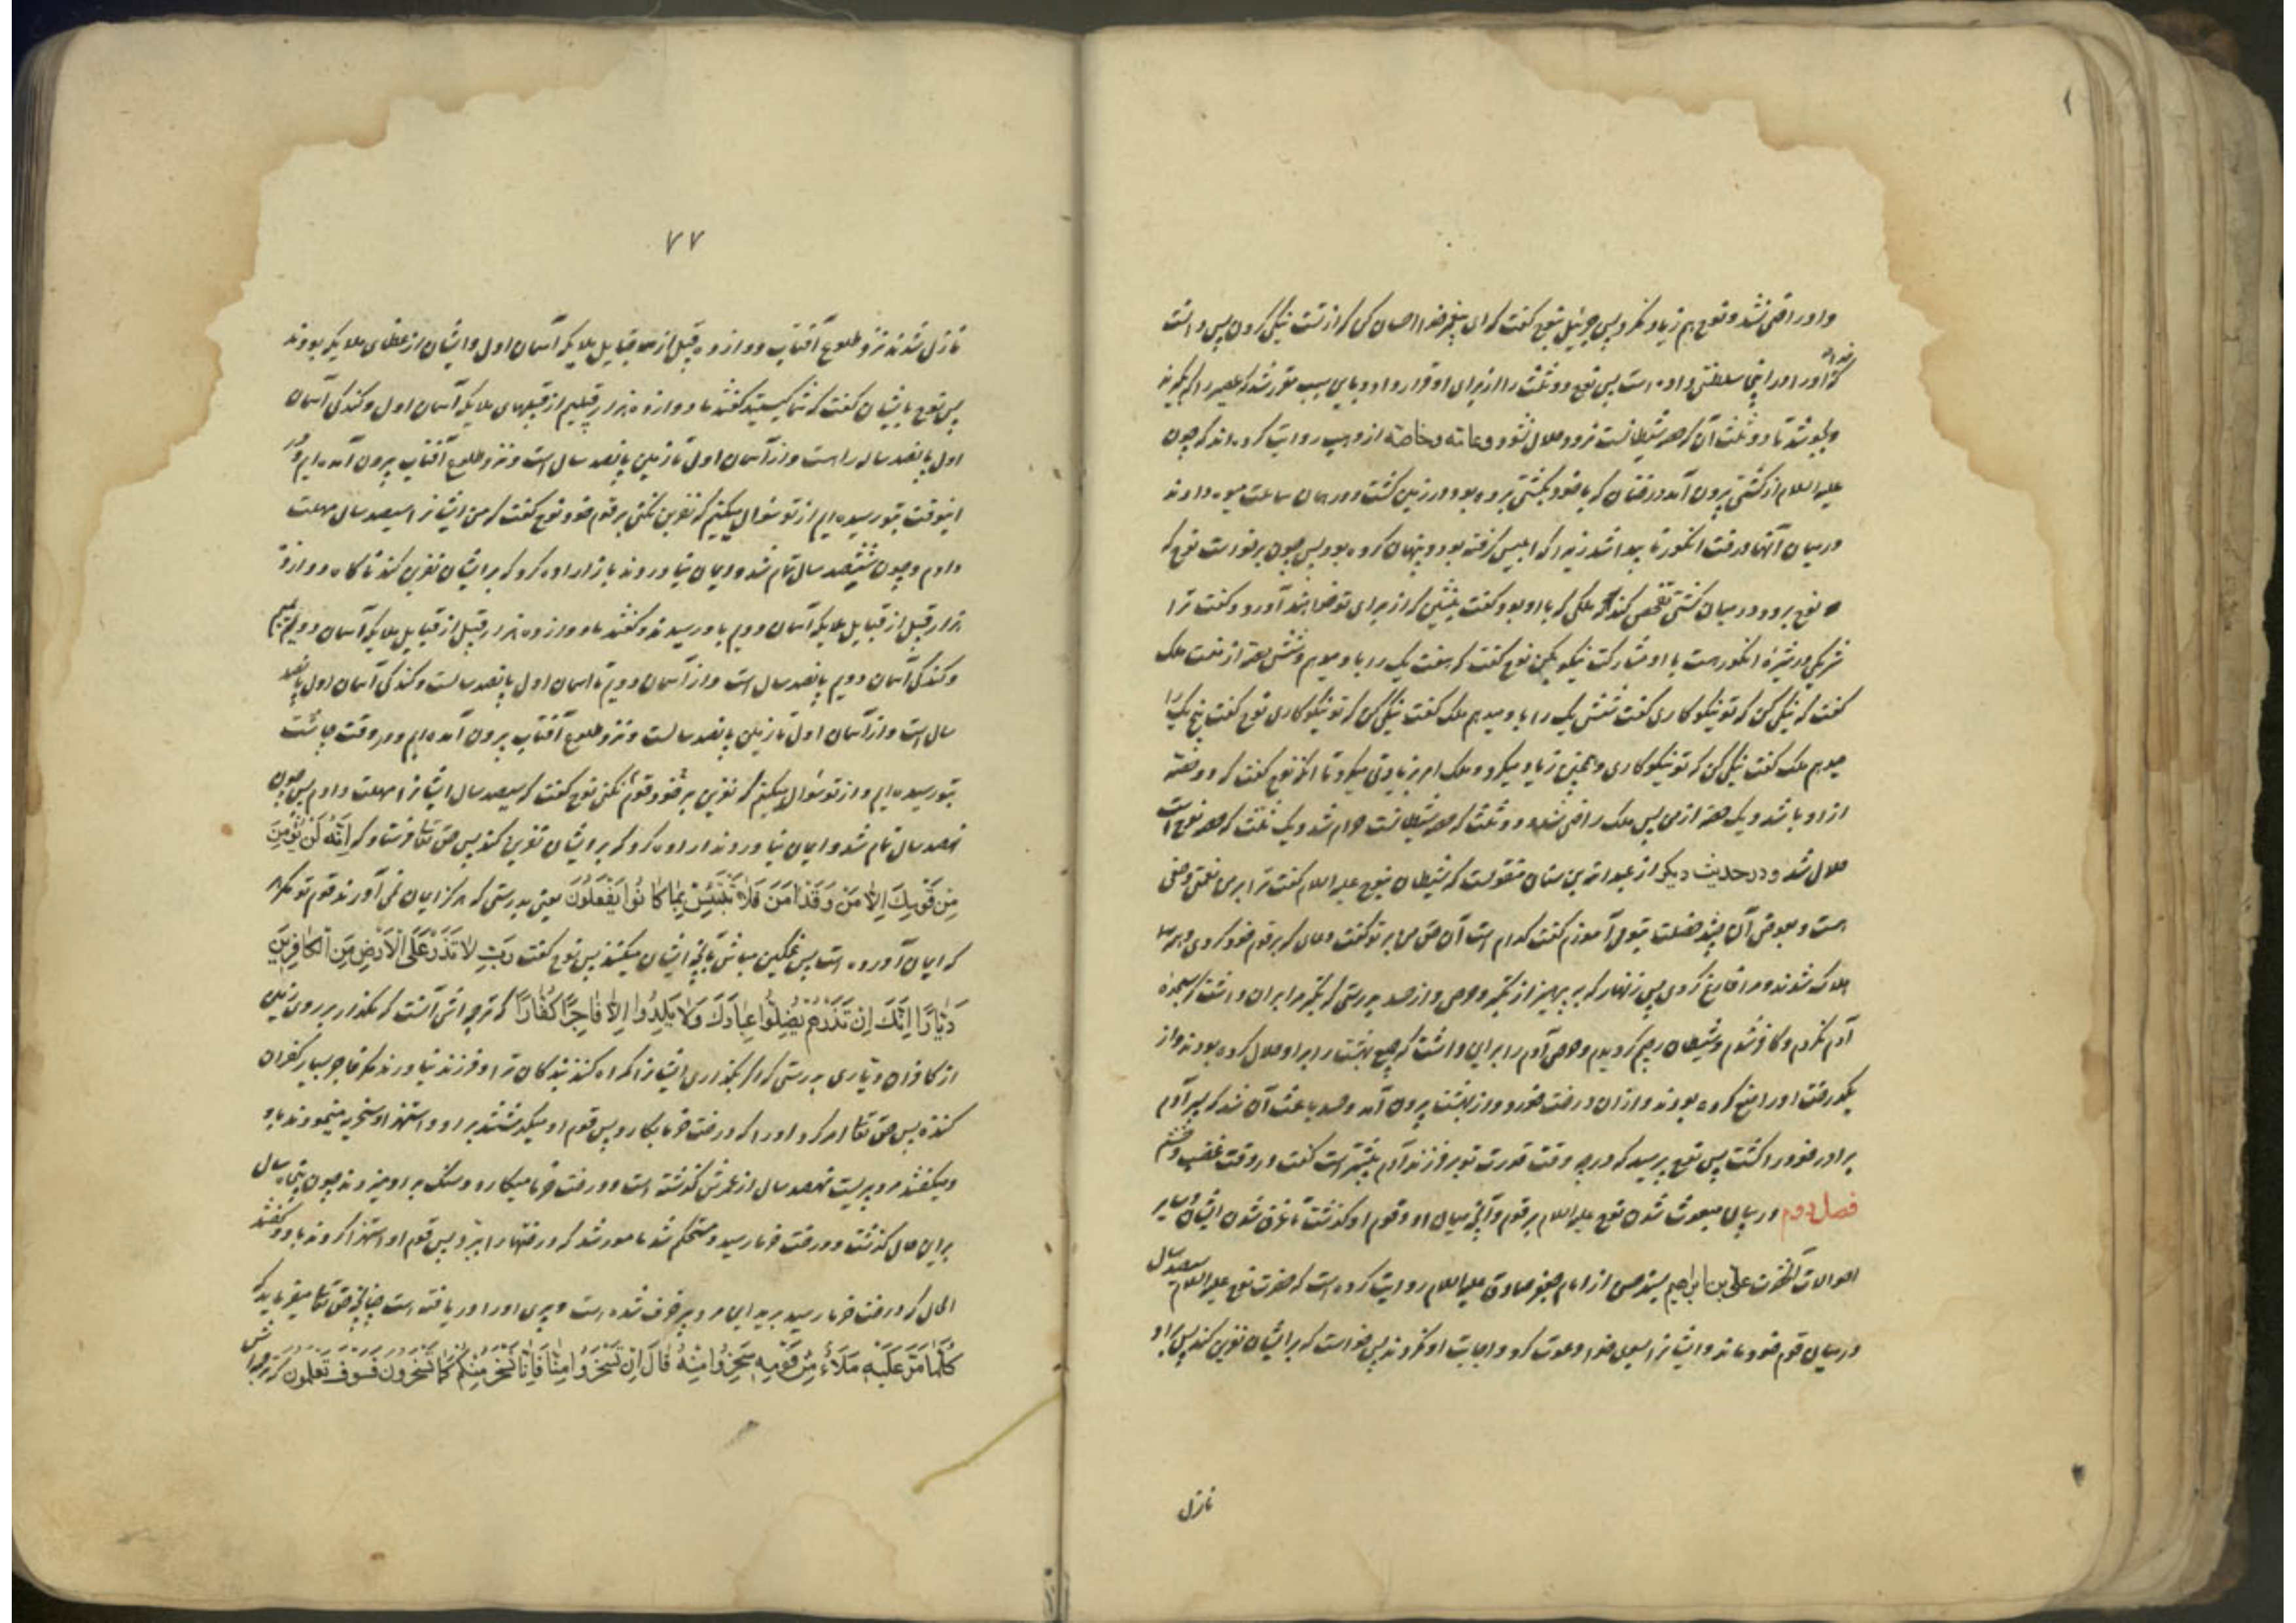 و او راضی نشد و نوح هم زیاد نکرد پس جبرئیل بنوح گفت که ای پیغمبر خدا احسان کن که از تست نیکی کردن پس دانست
که او را در اینجا سلطنتی داده است پس نوح دو ثلث را از برای او قرار داد و باین سبب مقرر شد که عصیر را که بگیرند
و بجوشد تا دو ثلث آن که حصه شیطانست نرود حلال نشود و عامه و خاصه از وهب روایت کرده‌اند که چون
علیه السلام از کشتی بیرون آمد درختان که با خود بکشتی برده بود در زمین کشت و در همان ساعت میوه دادند
و در میان آنها درخت انگور نا پیدا شد زیرا که ابلیس گرفته بود و پنهان کرده بود پس چون برخواست نوح که
برود در میان کشتی تفحص کند ملکی که با او بود گفت بنشین که از برای تو خواهند آورد و گفت ترا
شریکی در شیره انگور هست با او مشارکت نیکو بکن نوح گفت که هفت یک را باو میدهم و شش حصه از من ملک
گفت که نیکی کن که تو نیکوکاری گفت شش یک را باو میدهم ملک گفت نیکی کن که تو نیکوکاری نوح گفت پنج یک را
میدهم ملک گفت نیکی کن که تو نیکوکاری و همچنین زیاد میکرد و ملک امر بزیادتی میکرد تا آنکه نوح گفت که دو حصه
از او باشد و یک حصه از من پس ملک راضی شد و دو ثلث که حصه شیطانست حرام شد و یک ثلث که حصه نوح است
حلال شد و در حدیث دیگر از عبد الله بن سنان منقولست که شیطان بنوح علیه السلام گفت ترا بر من نعمتی و حقی
هست و بعوض آن چند خصلت بتو می‌آموزم گفت کدام است آن حق من بر تو گفت دعائی که بر قوم خود کردی و همه
هلاک شدند و مرا فارغ کردی پس زنهار که بپرهیز از تکبر و حرص و از حسد بدرستی که تکبر مرا بر آن داشت که سجده
آدم نکردم و کافر شدم و شیطان رجیم گردیدم و حرص آدم را بر این داشت که جمیع بهشت را بر او حلال کرده بودند و از
یکدرخت او را منع کرده بودند و از آن درخت خورد و از بهشت بیرون آمد و حسد باعث آن شد که پسر آدم
برادر خود را کشت پس نوح پرسید که در چه وقت قدرت تو بر فرزند آدم بیشتر است گفت در وقت غضب و خشم
فصل دوم در بیان مبعوث شدن نوح علیه السلام بر قوم و آنچه میان او و قوم او گذشت تا غرق شدن ایشان و سایر
احوالات آنحضرت علی بن ابراهیم بسند حسن از امام جعفر صادق علیه السلام روایت کرده است که حضرت نوح علیه السلام سیصد سال
در میان قوم خود ماند و ایشان را بسوی خدا دعوت کرد و اجابت او نکردند پس خواست که بر ایشان نفرین کند پس بر او
نازل
۷۷
نازل شدند نزد طلوع آفتاب دوازده هزار قبیل از قبایل ملایکه آسمان اول و ایشان از عظمای ملایکه بودند
پس نوح بایشان گفت که شما کیستید گفتند ما دوازده هزار قبیلیم از قبیلهای ملایکه آسمان اول و گندگی آسمان
اول پانصد ساله راهست و از آسمان اول تا زمین پانصد سال است و نزد طلوع آفتاب بیرون آمده‌ایم و در
اینوقت بتو رسیده‌ایم از تو سؤال میکنیم که نفرین نکنی بر قوم خود نوح گفت که من ایشانرا سیصد سال مهلت
دادم و چون ششصد سال تمام شد و ایمان نیاوردند باز اراده کرد که بر ایشان نفرین کند ناگاه دوازده
هزار قبیل از قبایل ملایکه آسمان دویم باو رسیدند و گفتند ما دوازده هزار قبیل از قبایل ملایکه آسمان دویمیم
و گندگی آسمان دویم پانصد سال است و از آسمان دویم تا آسمان اول پانصد سالست و گندگی آسمان اول پانصد
سال است و از آسمان اول تا زمین پانصد سالست و نزد طلوع آفتاب بیرون آمده‌ایم و در وقت چاشت
بتو رسیده‌ایم و از تو سؤال میکنیم که نفرین بر قوم خود نکنی نوح گفت که سیصد سال ایشانرا مهلت دادم پس چون
نهصد سال تمام شد و ایمان نیاوردند اراده کرد که بر ایشان نفرین کند پس حق تعالی فرستاد که اِنَّهُ لَنْ یُؤْمِنَ
مِنْ قَوْمِكَ اِلاّٰ مَنْ قَدْ اٰمَنَ فَلاٰ تَبْتَئِسْ بِمٰا كٰانُوا یَفْعَلُونَ یعنی بدرستی که هرگز ایمان نمی‌آورند قوم تو مگر آنها
که ایمان آورده است پس غمگین مباش بآنچه ایشان میکنند پس نوح گفت رَبِّ لاٰ تَذَرْ عَلَی الْاَرْضِ مِنَ الْكٰافِرِینَ
دَیّٰارًا اِنَّكَ اِنْ تَذَرْهُمْ یُضِلُّوا عِبٰادَكَ وَلاٰ یَلِدُوا اِلاّٰ فٰاجِرًا كَفّٰارًا که ترجمه‌اش آنست که مگذار بر روی زمین
از کافران دیاری بدرستی که اگر بگذاری ایشانرا گمراه کنند بندگان ترا و فرزند نیاورند مگر فاجر بسیار کفران
کننده پس حق تعالی امر کرد او را که درخت خرما بکارد پس قوم او میگذشتند بر او و استهزا و سخریه مینمودند باو
و میگفتند مرد پیریست نهصد سال از عمرش گذشته است و درخت خرما میکارد و سنگ بر او میزدند چون پنجاه سال
بر این حال گذشت و درخت خرما رسید و مستحکم شد مامور شد که درختها را ببرد پس قوم او استهزا کردند باو و گفتند
الحال که درخت خرما رسید برید این مرد پیر خرف شده است و پیری او را دریافته است چنانچه حق تعالی میفرماید که
كُلَّمٰا مَرَّ عَلَیْهِ مَلَاٌ مِنْ قَوْمِهِ سَخِرُوا مِنْهُ قٰالَ اِنْ تَسْخَرُوا مِنّٰا فَاِنّٰا نَسْخَرُ مِنْكُمْ كَمٰا تَسْخَرُونَ فَسَوْفَ تَعْلَمُونَ که ترجمه‌اش